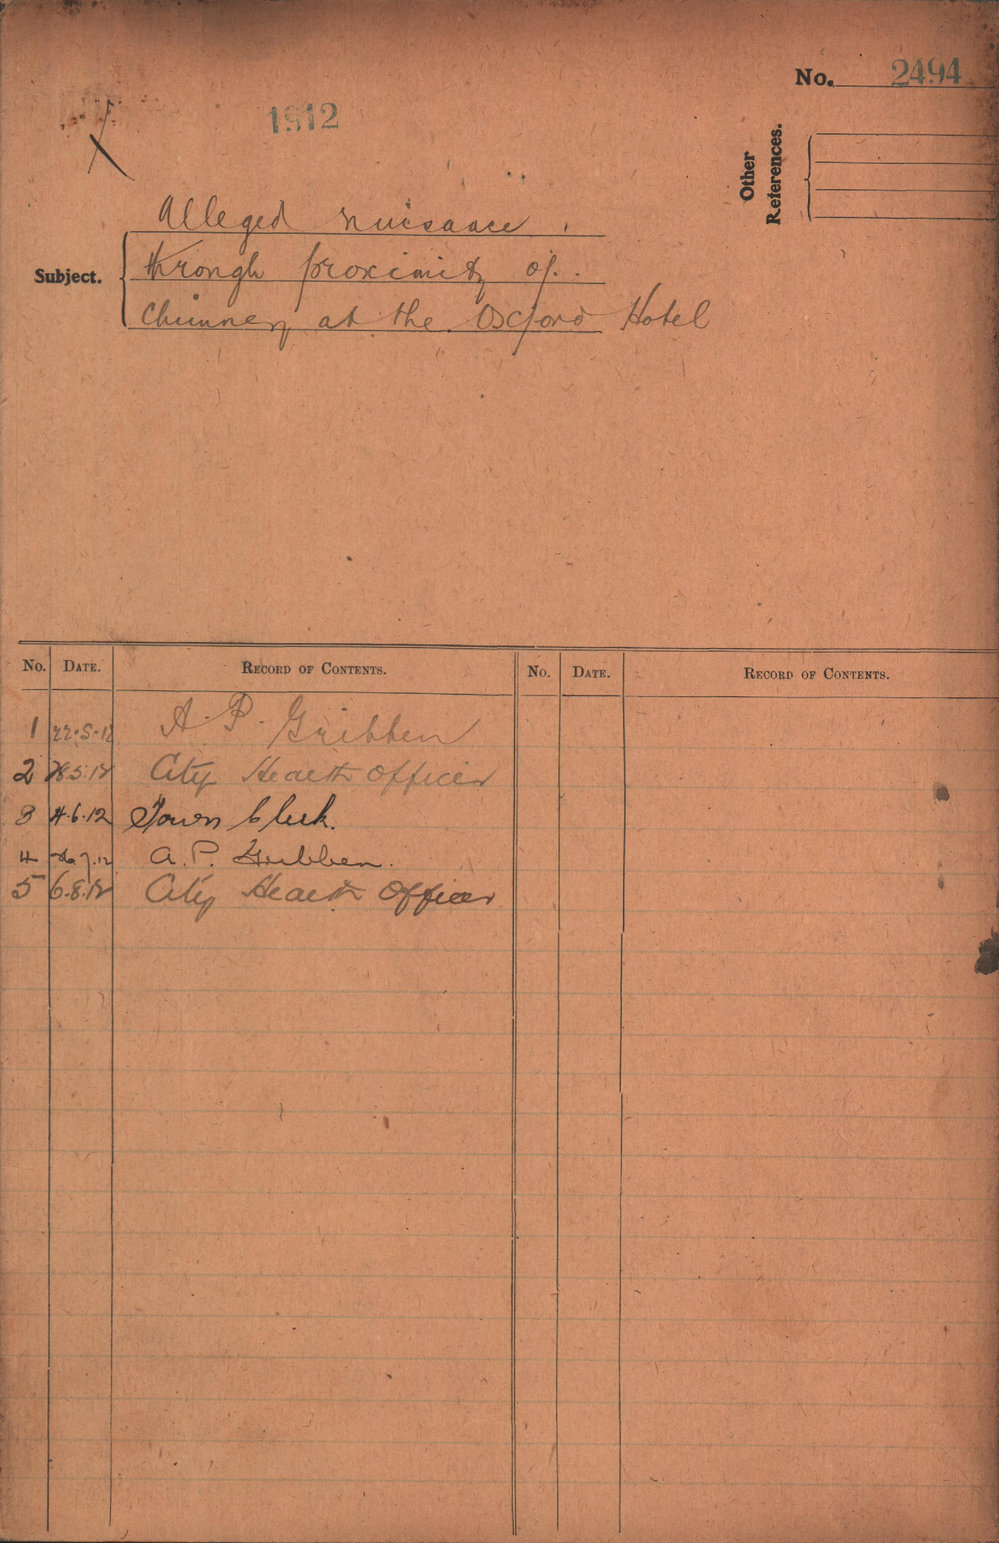 No. 2494
1912
Other References.
Subject.
Alleged nuisance
through proximity of
Chimney at the Oxford Hotel
No. DATE. RECORD OF CONTENTS. No. DATE. RECORD OF CONTENTS.
1 22.5.12 A. P. Gribben
2 28.5.12 City Health Officer
3 4.6.12 Town Clerk.
4 7.12 A. P. Gribben.
5 6.8.12 City Health Officer